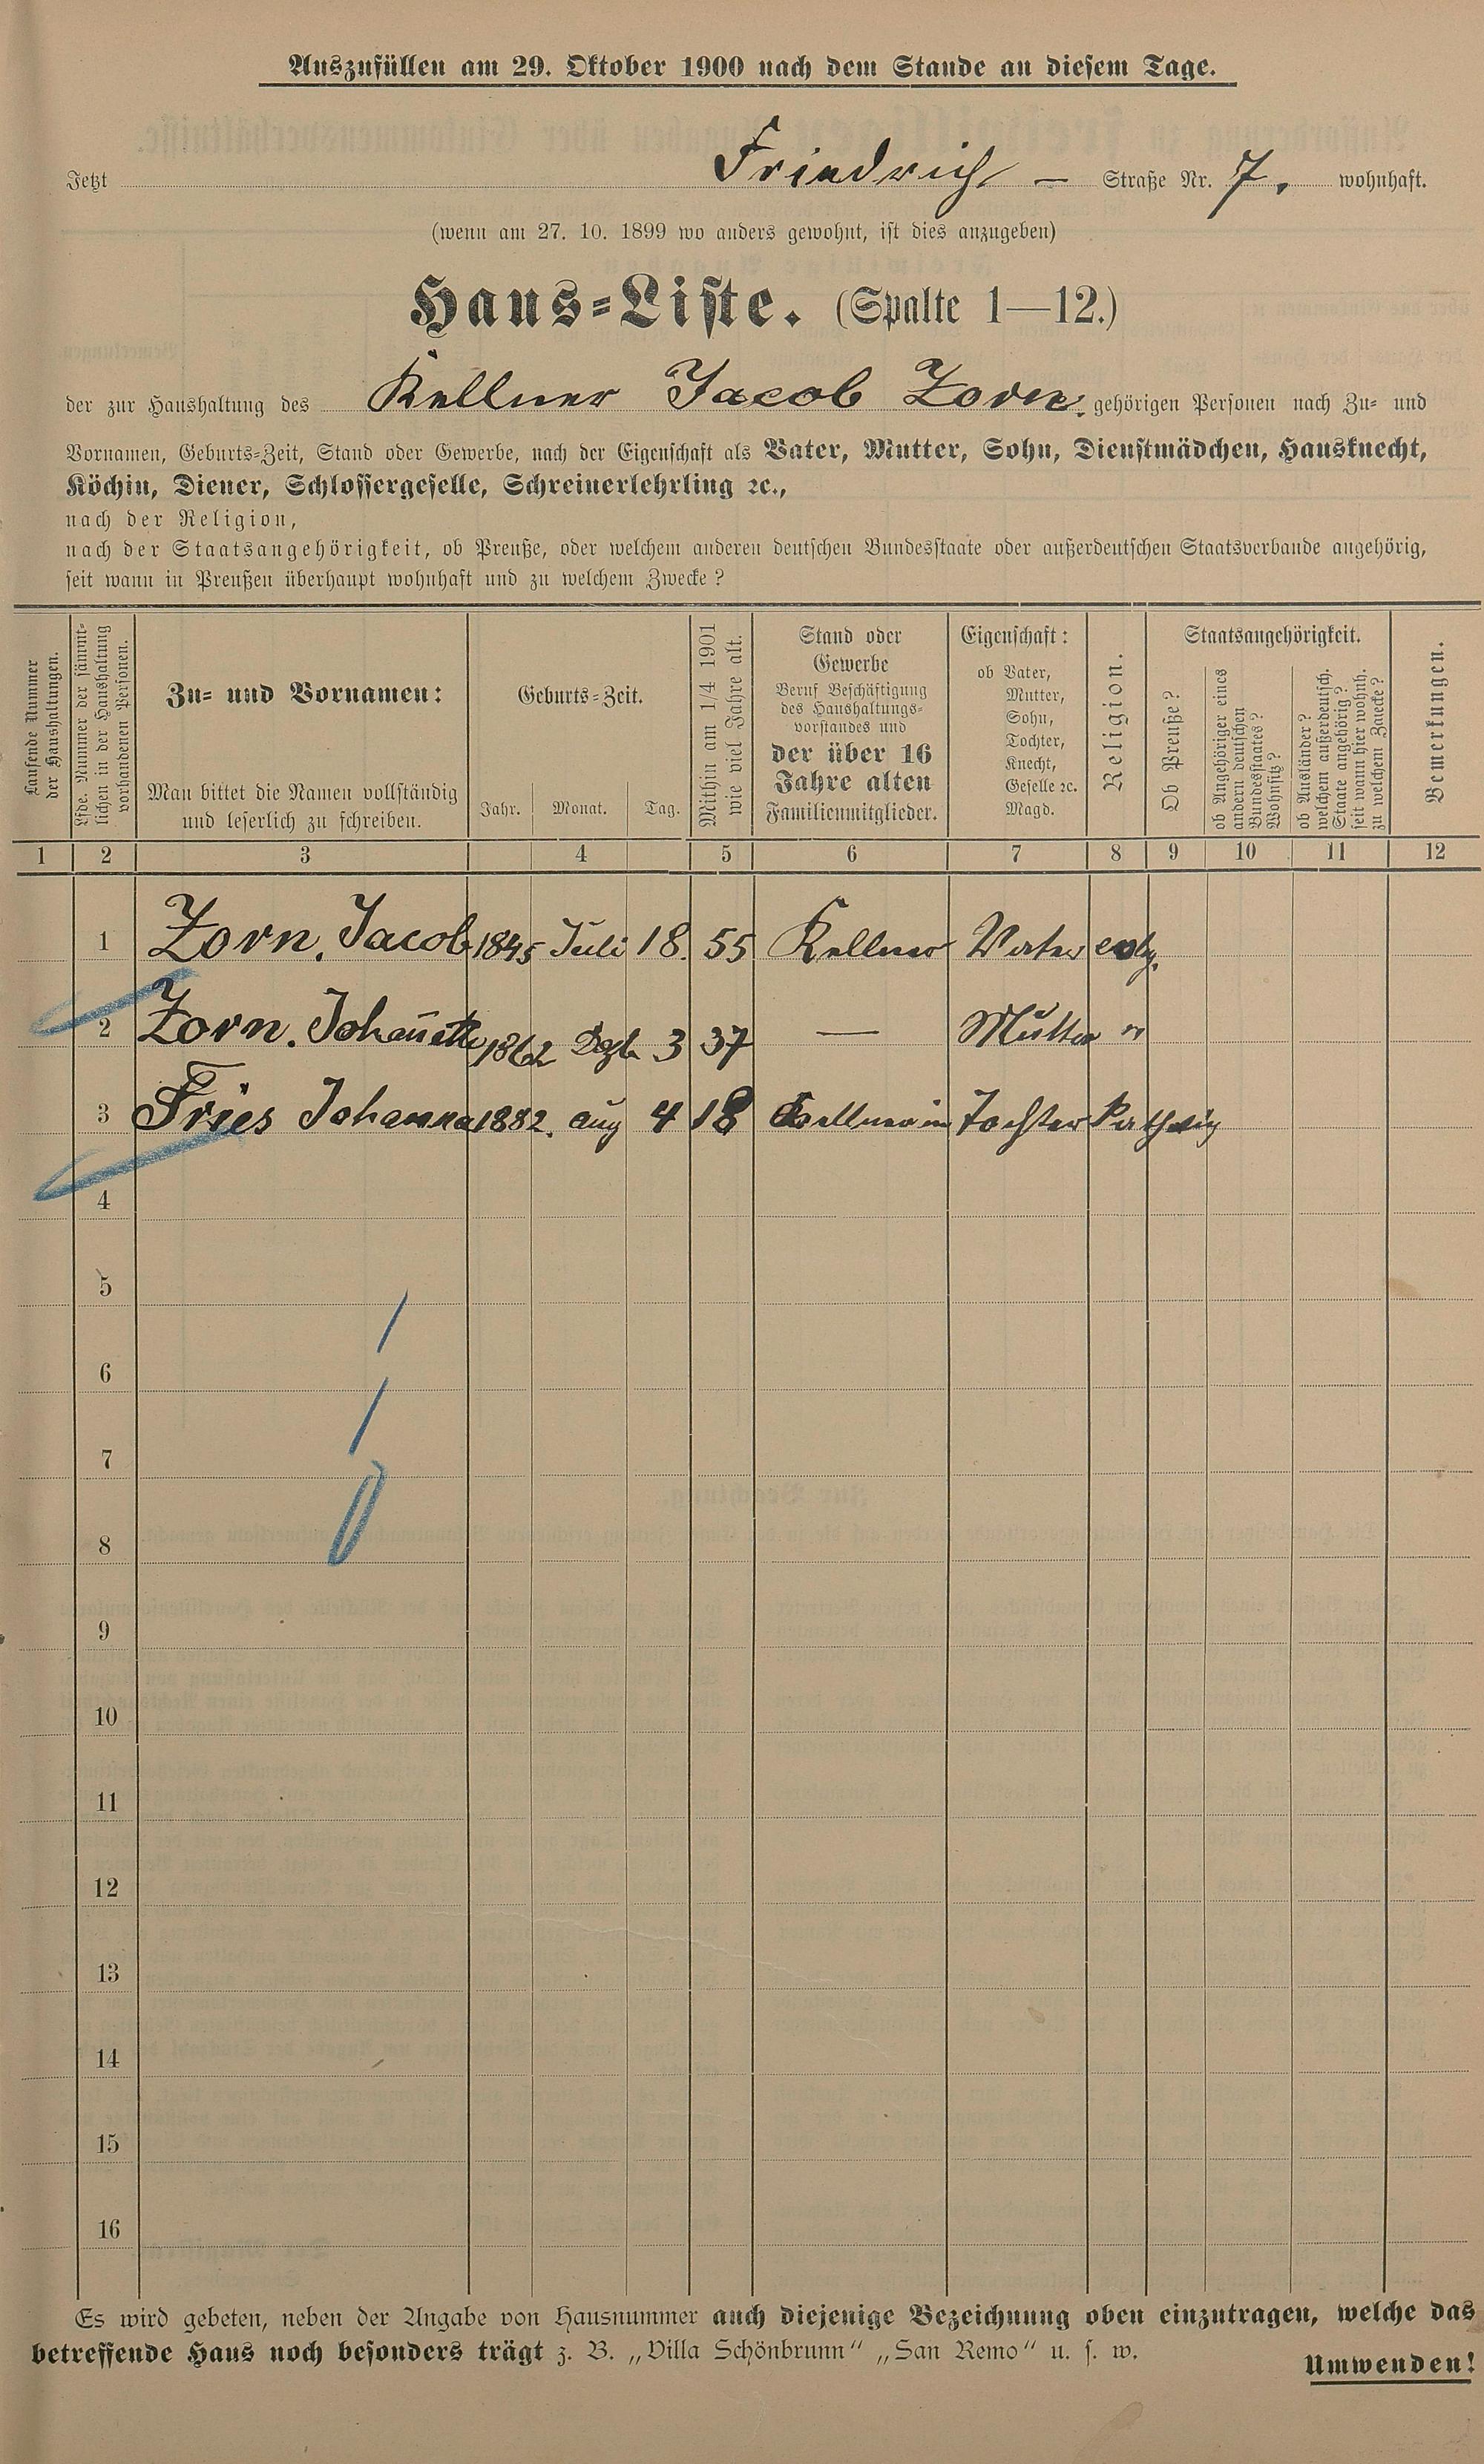 Auszufüllen am 29. Oktober 1900 nach dem Stande an diesem Tage.
Jetzt Friedrich – Straße Nr. 7. wohnhaft.
(wenn am 27. 10. 1899 wo anders gewohnt, ist dies anzugeben)
Haus-Liste. (Spalte 1—12.)
der zur Haushaltung des Kellner Jacob Zorn. gehörigen Personen nach Zu- und
Vornamen, Geburts-Zeit, Stand oder Gewerbe, nach der Eigenschaft als Vater, Mutter, Sohn, Dienstmädchen, Hausknecht,
Köchin, Diener, Schlossergeselle, Schreinerlehrling ꝛc.,
nach der Religion,
nach der Staatsangehörigkeit, ob Preuße, oder welchem anderen deutschen Bundesstaate oder außerdeutschen Staatsverbande angehörig,
seit wann in Preußen überhaupt wohnhaft und zu welchem Zwecke?
Laufende Nummer
der Haushaltungen.
Lfde. Nummer der sämmt-
lichen in der Haushaltung
vorhandenen Personen.
Zu- und Vornamen:
Man bittet die Namen vollständig
und leserlich zu schreiben.
Geburts-Zeit.
Jahr. Monat. Tag.
Mithin am 1/4 1901
wie viel Jahre alt.
Stand oder
Gewerbe
Beruf Beschäftigung
des Haushaltungs-
vorstandes und
der über 16
Jahre alten
Familienmitglieder.
Eigenschaft:
ob Vater,
Mutter,
Sohn,
Tochter,
Knecht,
Geselle ꝛc.
Magd.
Religion.
Staatsangehörigkeit.
Ob Preuße?
ob Angehöriger eines
andern deutschen
Bundesstaates?
Wohnsitz?
ob Ausländer?
welchem außerdeutsch.
Staate angehörig?
seit wann hier wohnh.
zu welchem Zwecke?
Bemerkungen.
1 2 3 4 5 6 7 8 9 10 11 12
1 Zorn. Jacob 1845 Juli 18. 55 Kellner Vater evlg.
2 Zorn. Johan̄ette 1862 Dezb. 3 37 — Mutter "
3 Fries Johanna 1882. aug 4 18 Kellnerin Tochter Katholig
4
5
6
7
8
9
10
11
12
13
14
15
16
Es wird gebeten, neben der Angabe von Hausnummer auch diejenige Bezeichnung oben einzutragen, welche das
betreffende Haus noch besonders trägt z. B. „Villa Schönbrunn“ „San Remo“ u. s. w.
Umwenden!